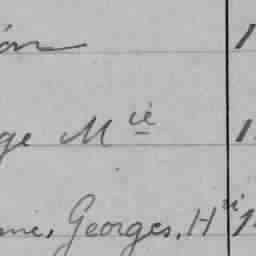 on 1
ge Mie 1
me, Georges, Hri 1